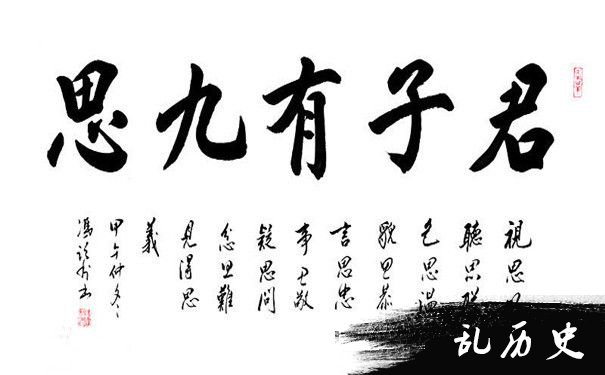 君子有九思
視思
聽思聰
色思溫
貌思恭
言思忠
事思敬
疑思問
忿思難
見得思
義
甲午仲冬
馮
乱历史